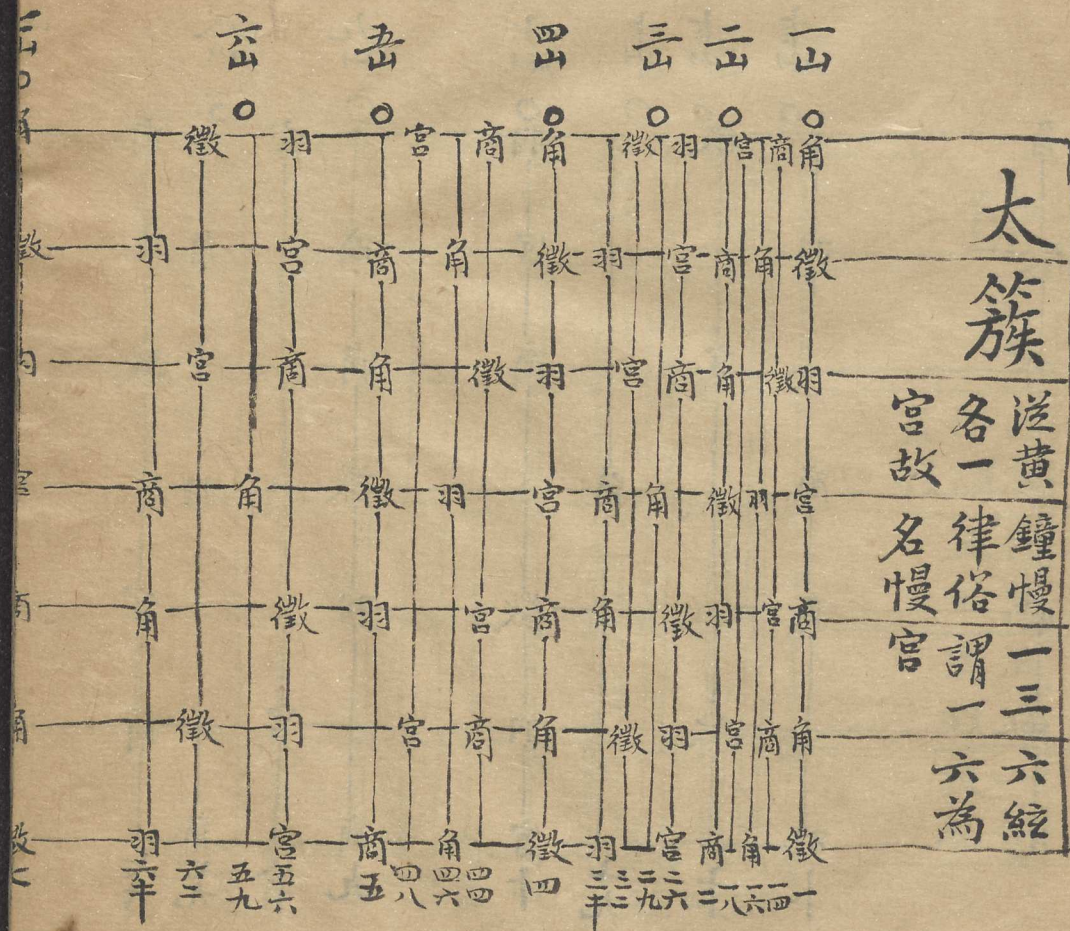 太簇
從黃鐘慢一三六絃
各一律俗謂一六為
宮故名慢宮
一山 二山 三山 四山 五山 六山
角 商 宮 羽 徵 角 商 宮 羽 徵
徵 角 商 宮 羽 徵 角 商 宮 羽
羽 徵 角 商 宮 羽 徵 角 商 宮
宮 羽 徵 角 商 宮 羽 徵 角 商
商 宮 羽 徵 角 商 宮 羽 徵 角
角 商 宮 羽 徵 角 商 宮 羽 徵
徵 角 商 宮 羽 徵 角 商 宮 羽
一 一四 一六 一八 二 二六 二九 三二 三半 四 四四 四六 四八 五 五六 五九 六二 六半